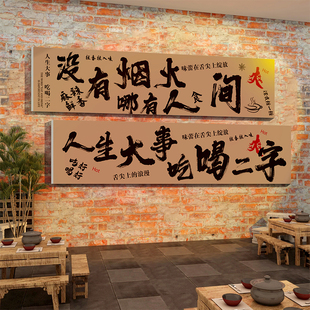 人生大事
吃喝二字
味蕾在舌尖上绽放
没有烟火
哪有人间
食
麻辣
鲜香
爽
味蕾在舌尖上绽放
人生大事
吃喝二字
吃好
喝好
舌尖上的浪漫
爽